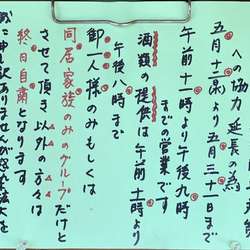 への協力 延長の為
五月十二日より五月三十一日まで
午前十一時より午後九時
までの営業です
酒類の提供は午前十一時より
午後八時まで
御一人様のみもしくは
同居家族のみのグループだけと
させて頂き以外の方々は
終日自粛となります
に申し訳ありませんが感染拡大を